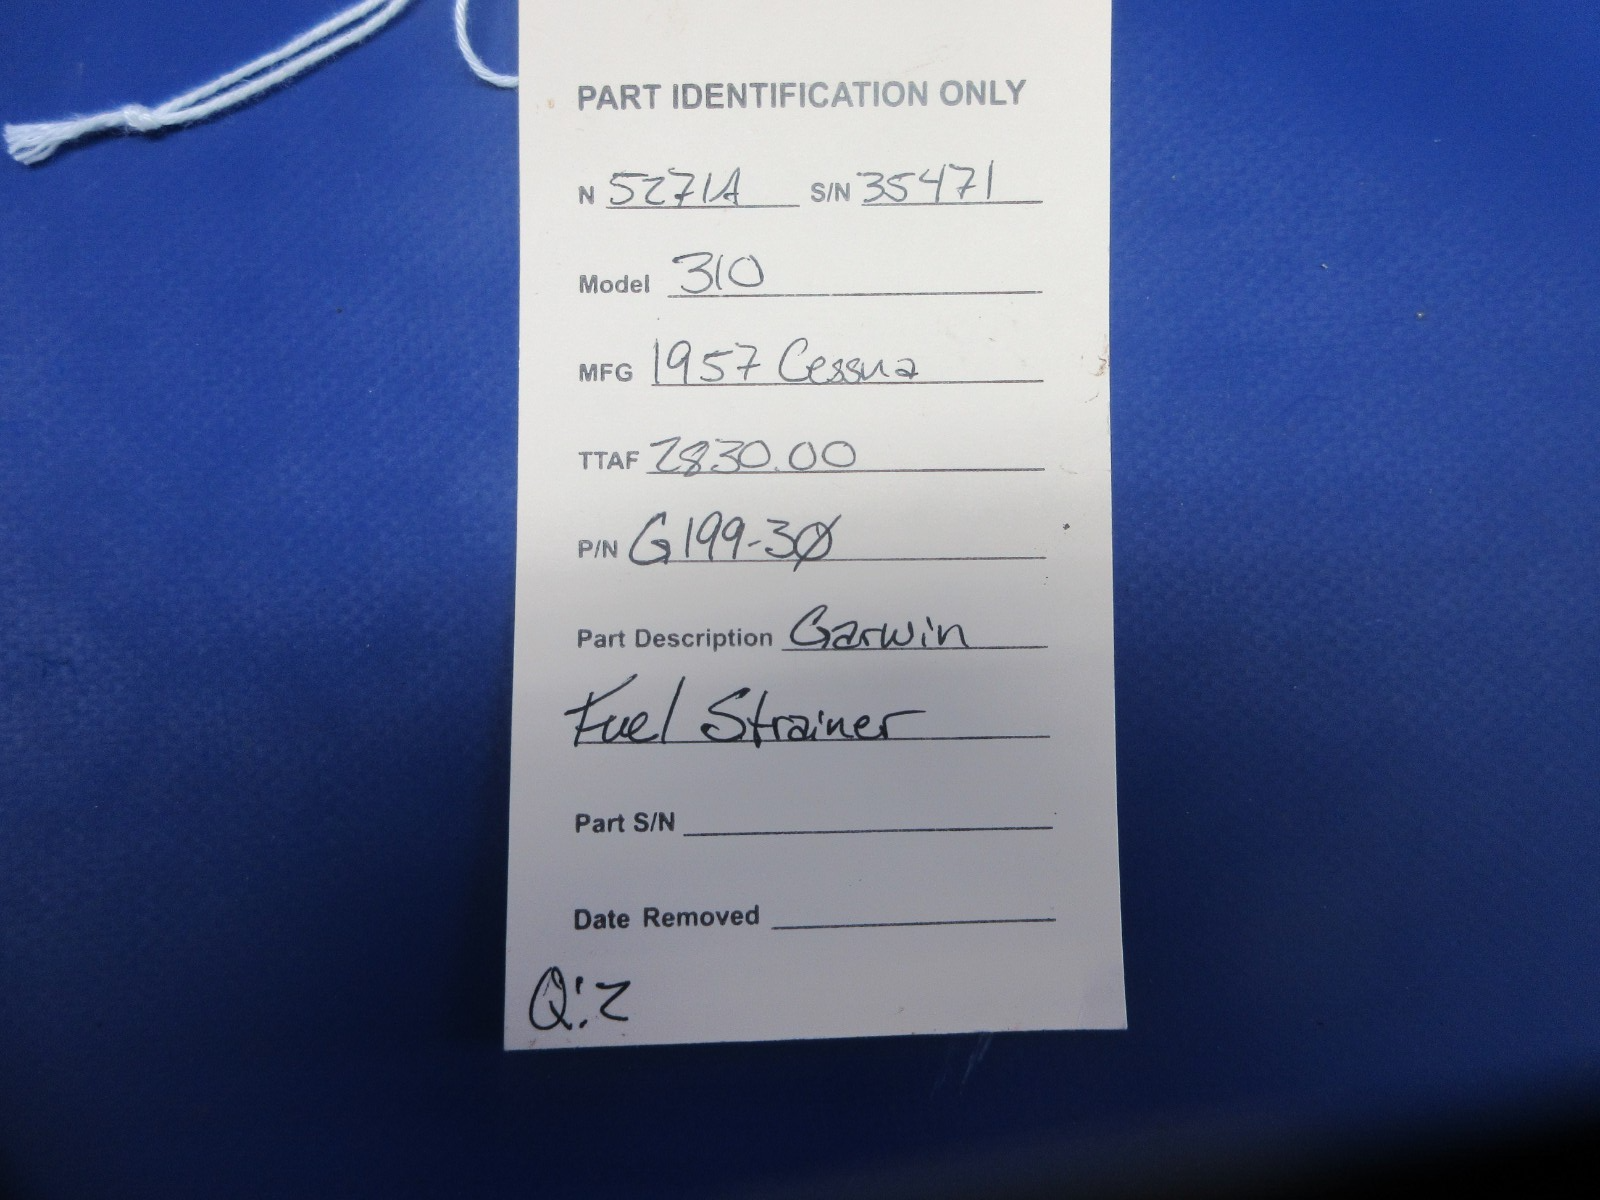 PART IDENTIFICATION ONLY
N 5271A S/N 35471
Model 310
MFG 1957 Cessna
TTAF 2830.00
P/N G199-3Ø
Part Description Garwin
Fuel Strainer
Part S/N
Date Removed
Q:2